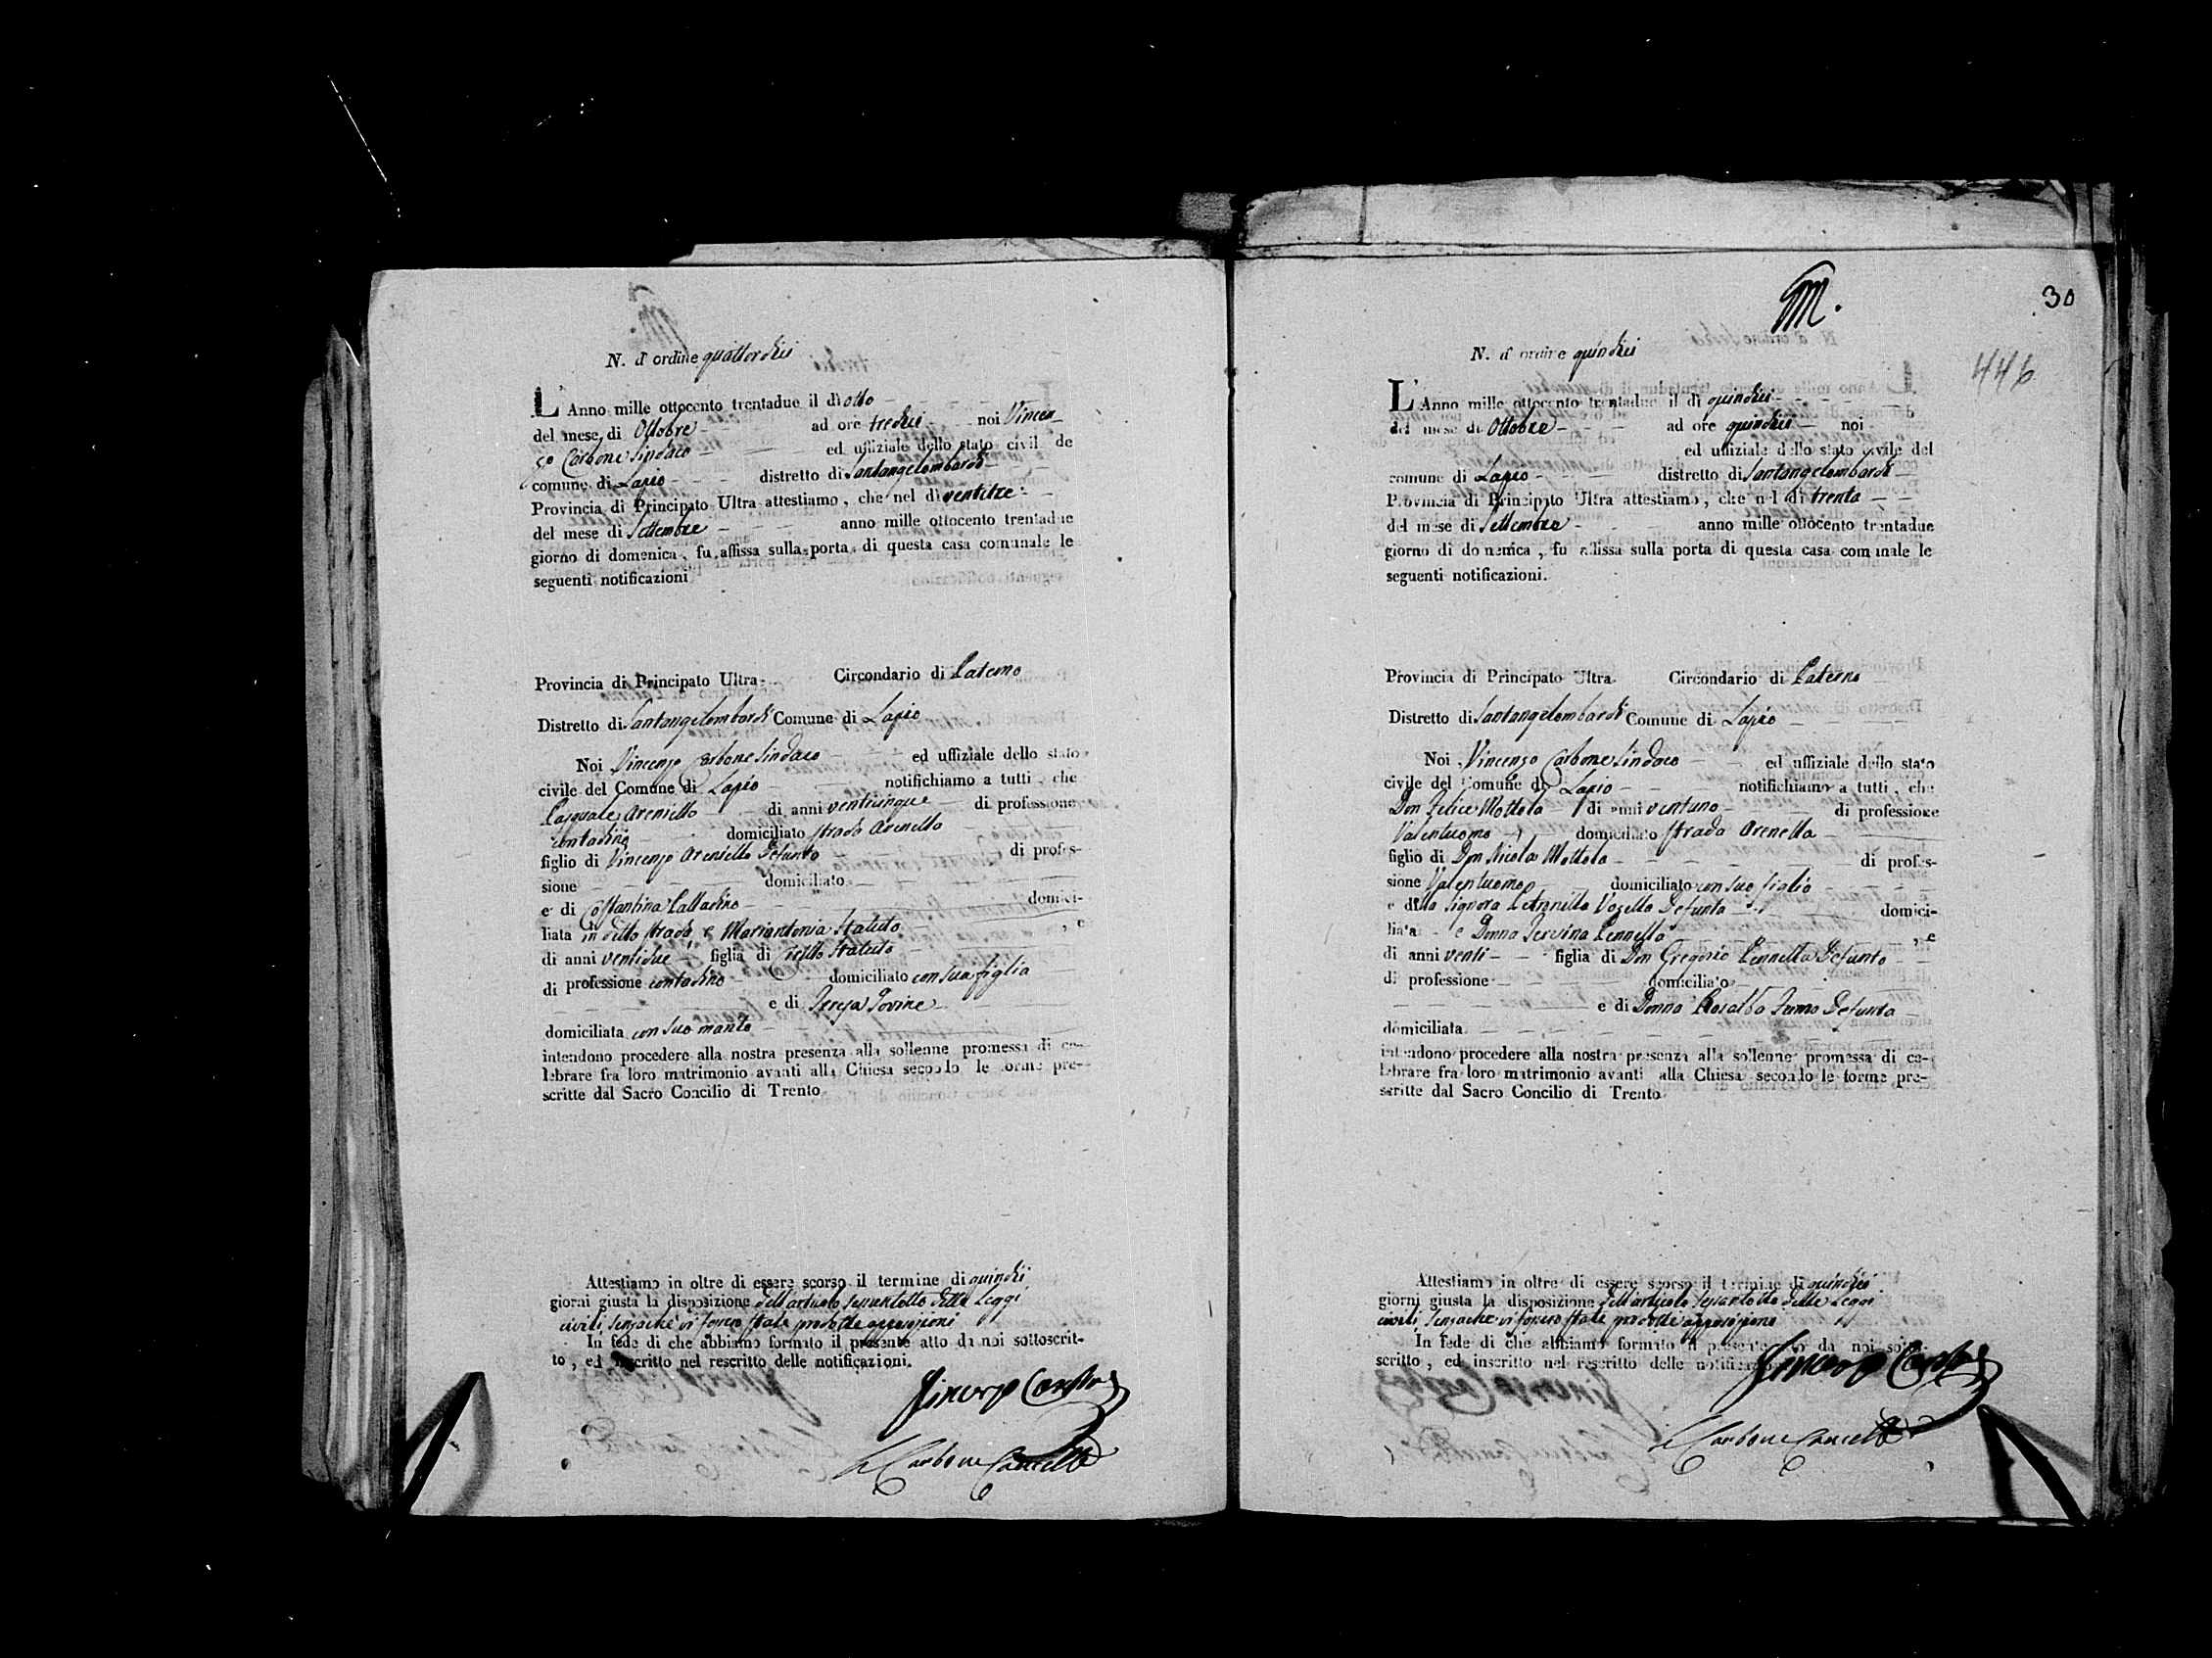 N. d' ordine quattordici
L' Anno mille ottocento trentadue il dì otto
del mese di Ottobre ad ore tredici noi Vincen
zo Carbone Sindaco ed uffiziale dello stato civil de
comune di Lapio distretto di Santangelombardi
Provincia di Principato Ultra attestiamo, che nel dì ventitre
del mese di Settembre anno mille ottocento trentadue
giorno di domenica, fu affissa sulla porta di questa casa comunale le
seguenti notificazioni
Provincia di Principato Ultra. Circondario di Paterno
Distretto di Santangelombardi Comune di Lapio
Noi Vincenzo Carbone Sindaco ed uffiziale dello stato
civile del Comune di Lapio notifichiamo a tutti, che
Pasquale Areniello di anni venticinque di professione
contadino domiciliato strada Arenella
figlio di Vincenzo Areniello defunto di profes-
sione domiciliato
e di Costantina Palladino domici-
liata in detta strada e Mariantonia Statuto , e
di anni ventidue figlia di Statuto
di professione contadino domiciliato con sua figlia
e di Teresa Iovine
domiciliata con suo marito
intendono procedere alla nostra presenza alla sollenne promessa di ce-
lebrare fra loro matrimonio avanti alla Chiesa secondo le forme pre-
scritte dal Sacro Concilio di Trento
Attestiamo in oltre di essere scorso il termine di quindici
giorni giusta la disposizione dell'articolo sessantotto delle Leggi
civili, senzacchè vi fossero state prodotte opposizioni
In fede di che abbiamo formato il presente atto da noi sottoscrit-
to, ed inscritto nel rescritto delle notificazioni.
Vincenzo Carbone
Carbone Cancell
30
446
N. d' ordine quindici
L' Anno mille ottocento trentadue il dì quindici
del mese di Ottobre ad ore quindici noi
ed uffiziale dello stato civile del
comune di Lapio distretto di Santangelombardi
Provincia di Principato Ultra attestiamo, che nel dì trenta
del mese di Settembre anno mille ottocento trentadue
giorno di domenica, fu affissa sulla porta di questa casa comunale le
seguenti notificazioni.
Provincia di Principato Ultra. Circondario di Paterno
Distretto di Santangelombardi Comune di Lapio
Noi Vincenzo Carbone Sindaco ed uffiziale dello stato
civile del Comune di Lapio notifichiamo a tutti, che
Don Felice Mottola di anni ventuno di professione
Valentuomo domiciliato strada Arenella
figlio di Don Nicola Mottola di profes-
sione Valentuomo domiciliato con suo figlio
e della Signora defunta domici-
liata e Donna Pennella , e
di anni venti figlia di Don Gregorio Pennella defunto
di professione domiciliato
e di Donna Rosalba defunta
domiciliata
intendono procedere alla nostra presenza alla sollenne promessa di ce-
lebrare fra loro matrimonio avanti alla Chiesa secondo le forme pre-
scritte dal Sacro Concilio di Trento
Attestiamo in oltre di essere scorso il termine di quindici
giorni giusta la disposizione dell'articolo sessantotto delle Leggi
civili, senzacchè vi fossero state prodotte opposizioni
In fede di che abbiamo formato il presente atto da noi sotto-
scritto, ed inscritto nel rescritto delle notificazioni
Vincenzo Carbone
Carbone Cancell